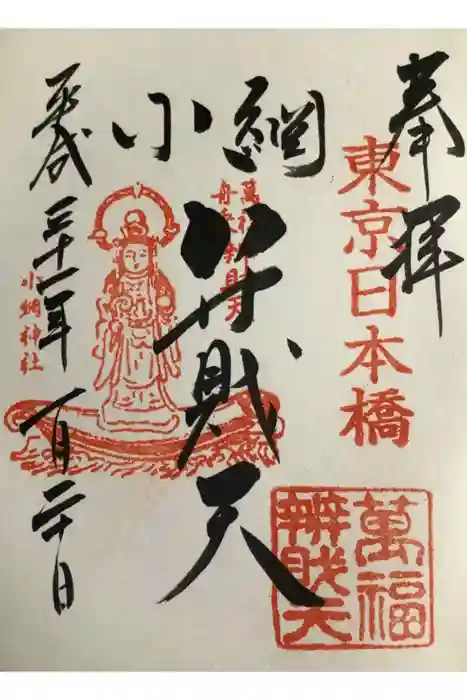 奉拝
東京日本橋
小網
弁財天
萬福
舟乗弁財天
小網神社
平成三十一年一月二十日
萬福
辨財天